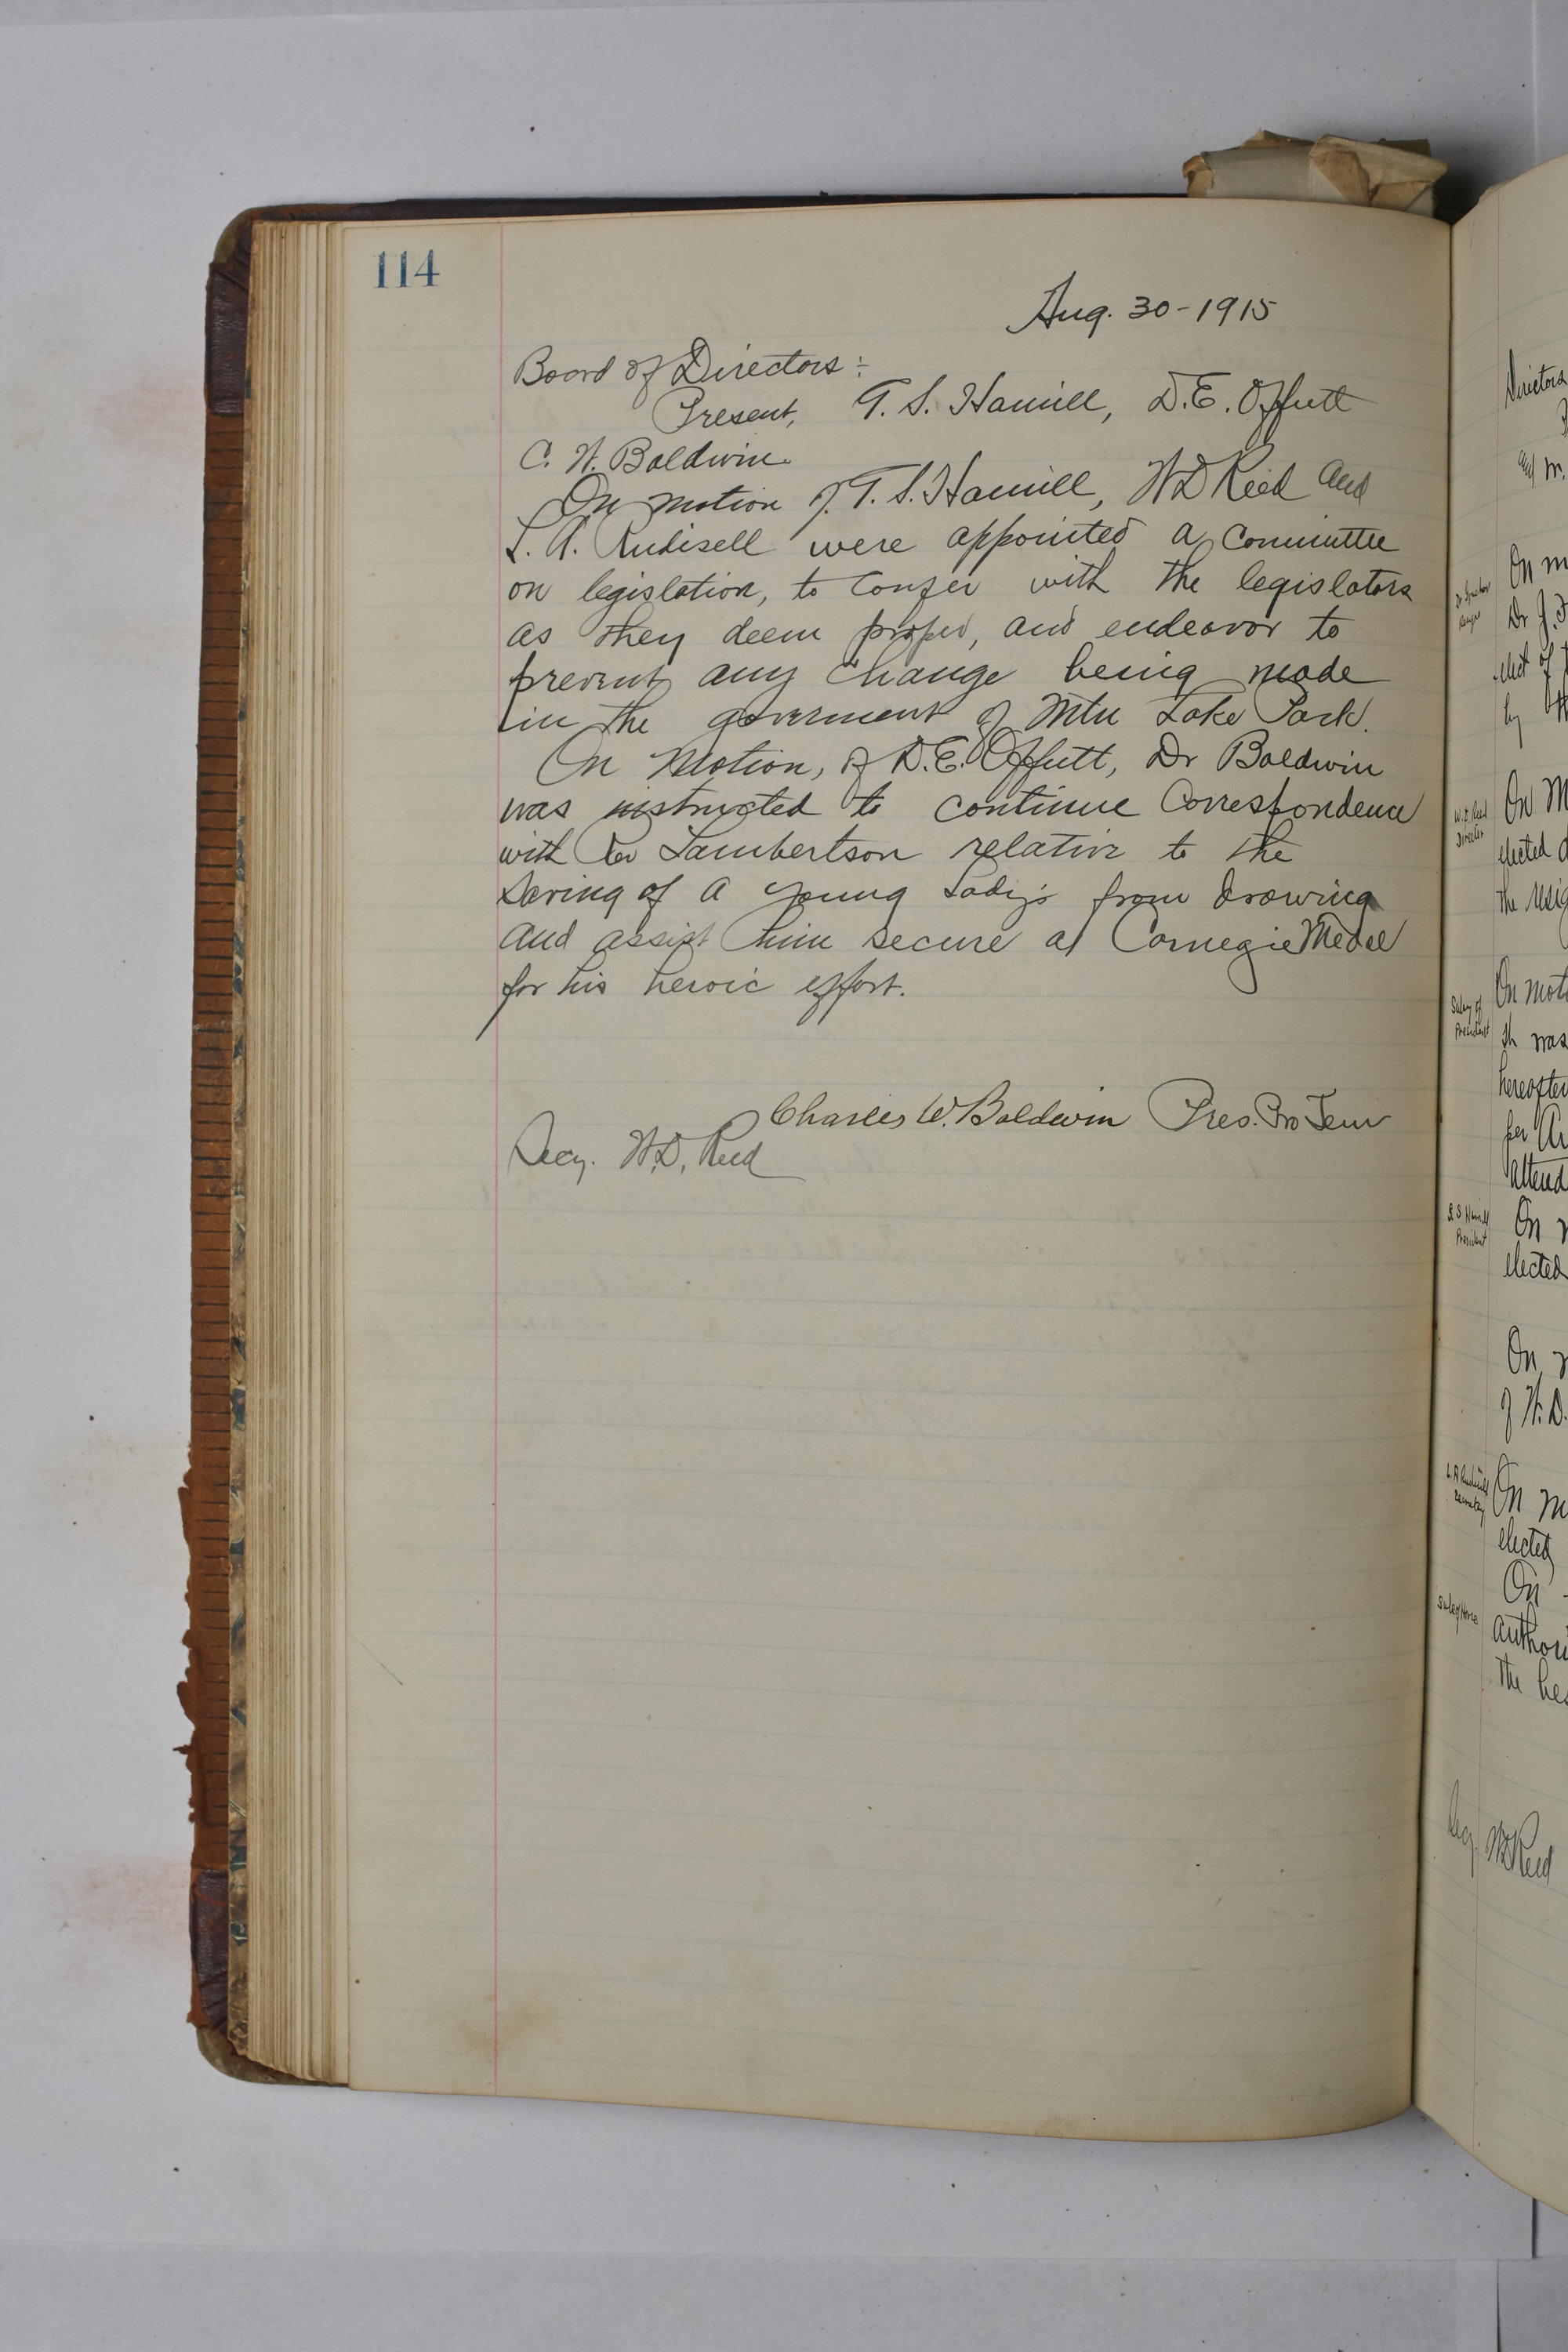 114
Aug. 30-1915
Board of Directors:
Present, G. S. Hamill, D.E. Offutt
C. W. Baldwin.
On motion of G. S. Hamill, W D Reed and
L. A. Rudisell were appointed a Committee
on legislation, to confer with the legislators
as they deem proper, and endeavor to
prevent any change being made
in the goverment of Mtn Lake Park.
On Motion, of D.E. Offutt, Dr Baldwin
was instructed to continue Correspondence
with Rev Lambertson relative to the
Saving of a young Lady's from drowing
and assist him secure a Carnegie Medal
for his heroic effort.
Charles W. Baldwin Pres. Pro Tem
Secy. W.D. Reed
Directors
On m
Dr J.
On M
elected
the resig
Salary of
President
On moti
It was
hereafter
per
attend
President
On
elected
On
of W.D.
On m
elected
On
authori
the
Secy W D Reed